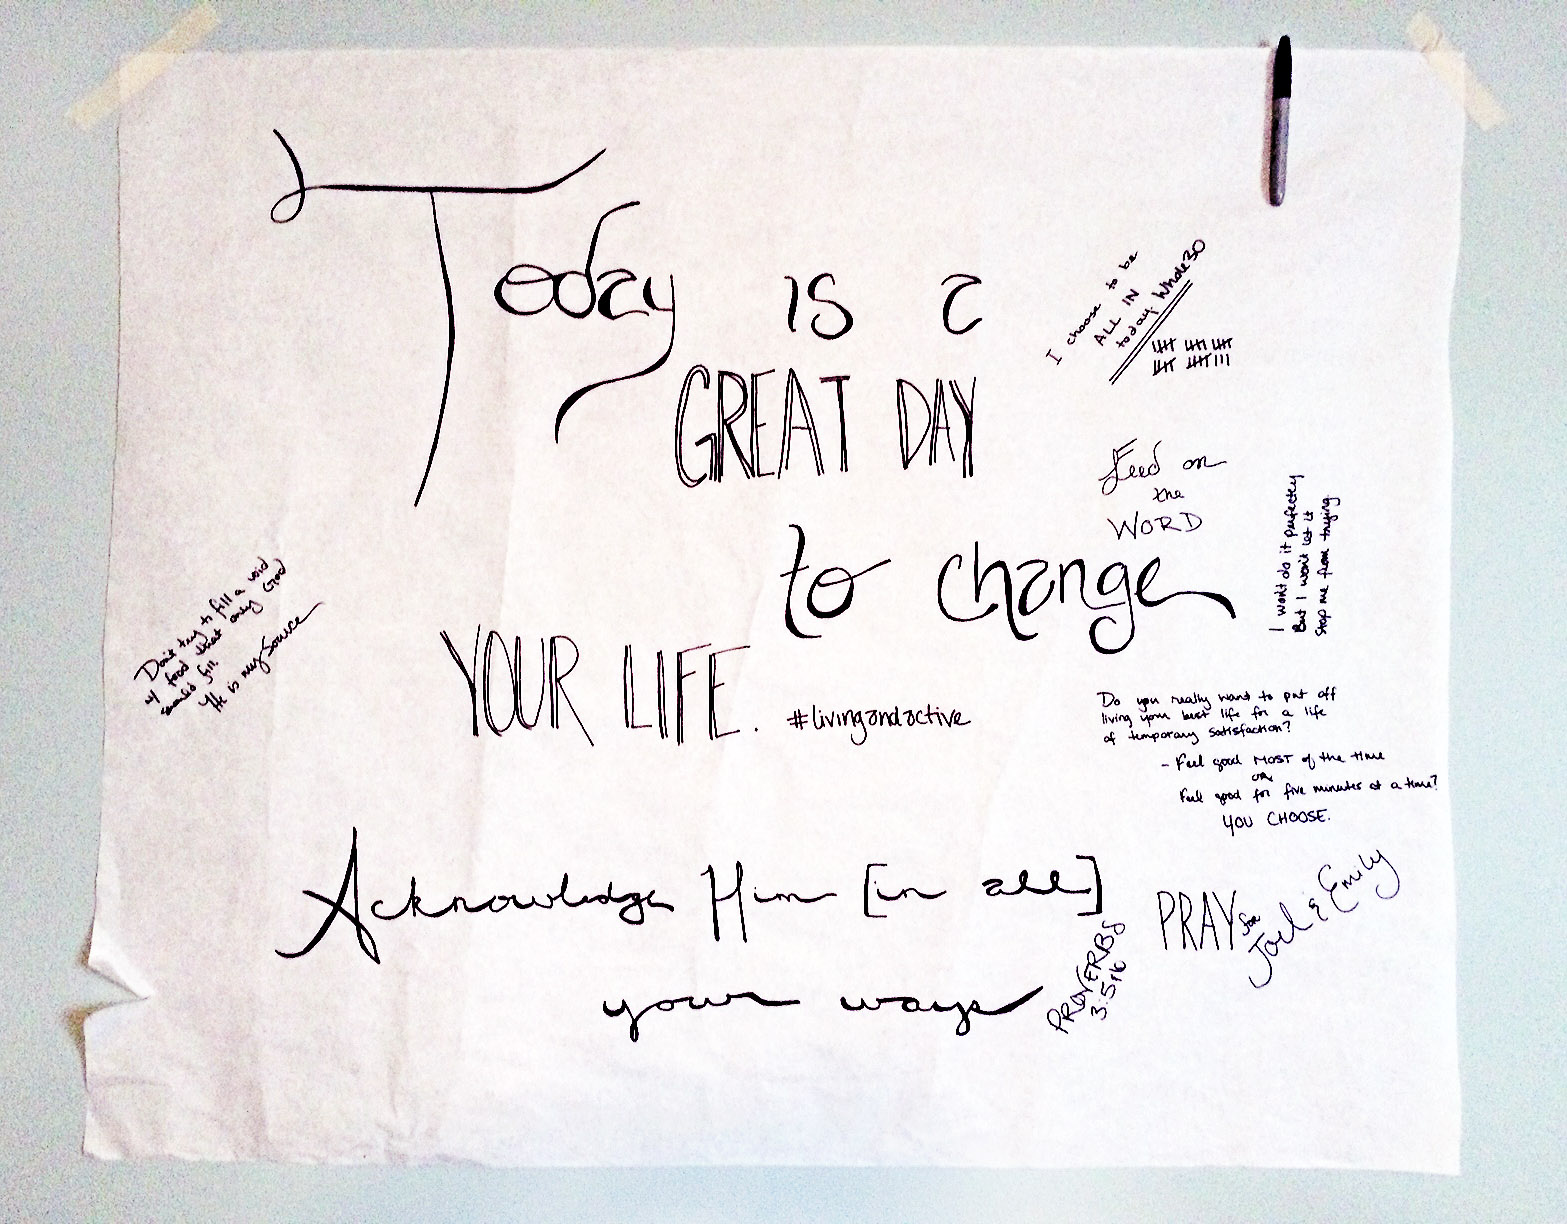 Today is a
GREAT DAY
to change
YOUR LIFE.
#livingandactive
I choose to be
ALL IN
today. Whole30
Feed on
the
WORD
I won't do it perfectly
But I won't let it
stop me from trying.
Don't try to fill a void
w/ food that only God
could fill.
He is my source
Do you really want to put off
living your best life for a life
of temporary satisfaction?
- Feel good MOST of the time
OR
Feel good for five minutes at a time?
YOU CHOOSE.
Acknowledge Him [in all]
your ways
PROVERBS
3:5+6
PRAY for
Joel & Emily